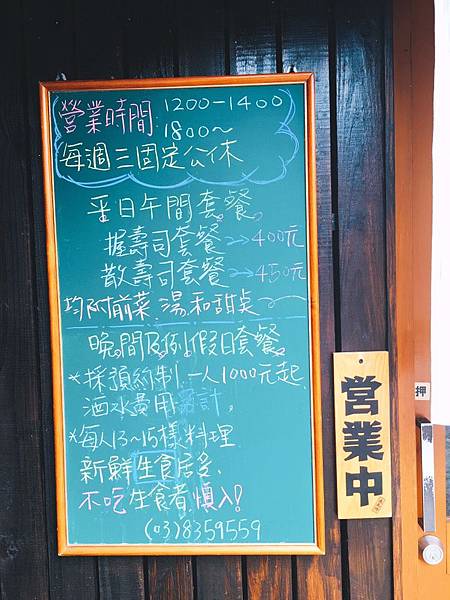 營業時間 1200-1400
1800~
每週三固定公休
平日午間套餐
握壽司套餐→400元
散壽司套餐→450元
均附前菜.湯.和甜点~
晚間及例假日套餐
*採預約制.一人1000元起.
酒水費用另計。
*每人13~15樣料理
新鮮生食居多.
不吃生食者慎入!
(03)8359559
営業中
押